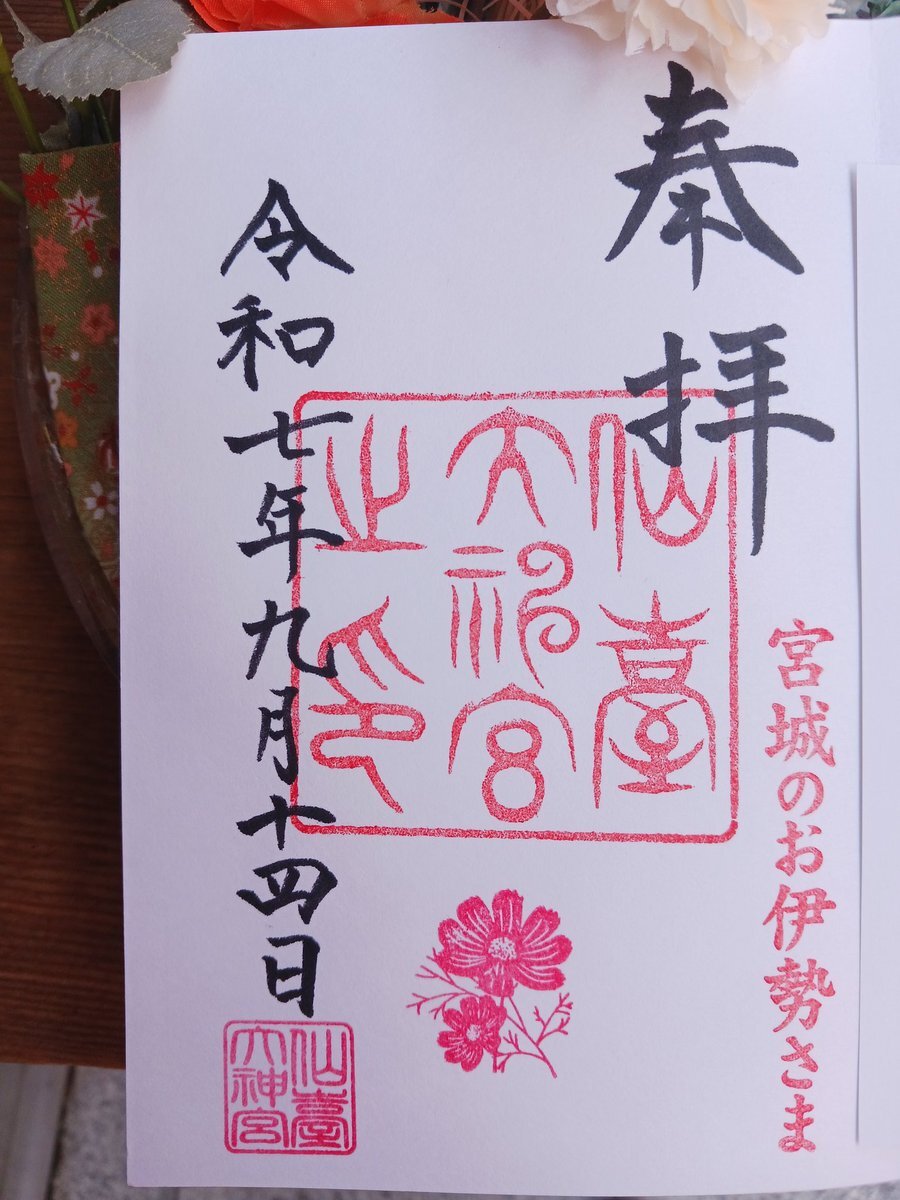 奉拝
宮城のお伊勢さま
仙臺
大神宮
之印
令和七年九月十四日
仙臺
大神宮